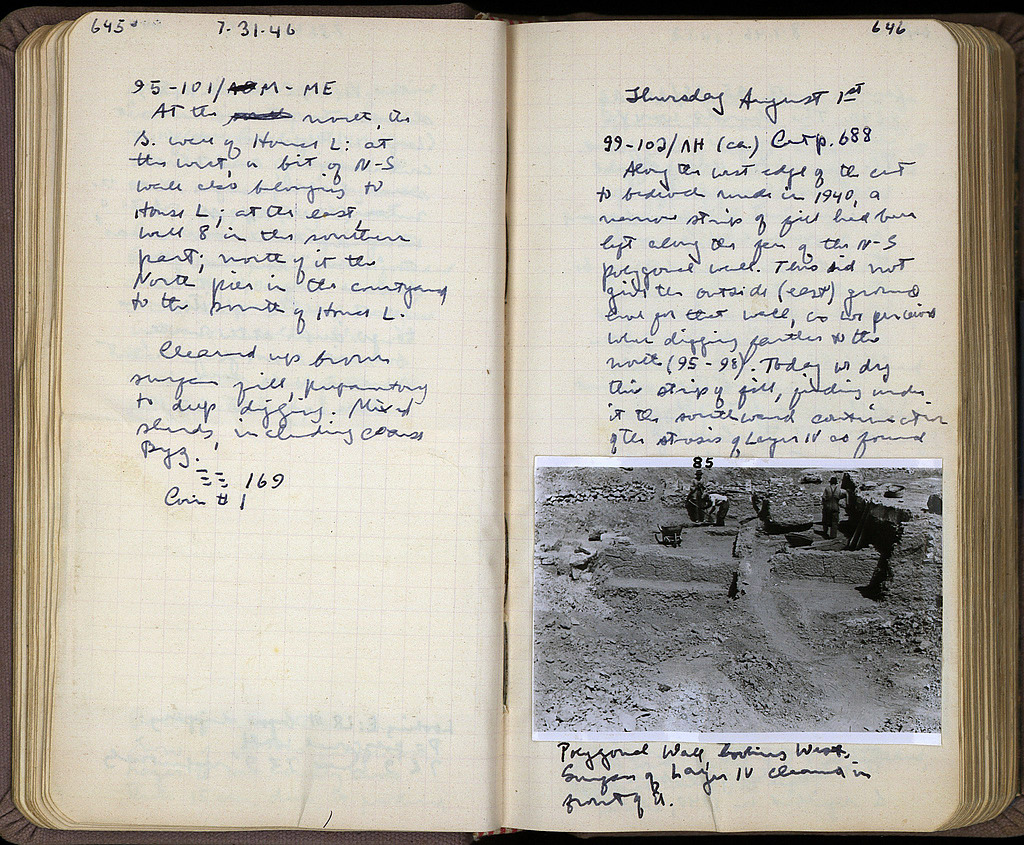 645 7-31-46
95-101/M - ME
At the north, the
S. wall of House L: at
the west, a bit of N-S
wall also belonging to
House L; at the east,
wall 8 in the southern
part; north of it the
North pier in the courtyard
to the south of House L.
Cleaned up brown
surface fill, preparatory
to deep digging. Mixed
sherds, including coarse
Byz.
169
Coin # 1
646
Thursday August 1st
99-102/ΛH (ca.) Cut p. 688
Along the west edge of the cut
to bedrock made in 1940, a
narrow strip of fill had been
left along the face of the N-S
polygonal wall. This did not
give the outside (east) ground
level for that wall, as we perceived
when digging farther to the
north (95-98). Today we dug
this strip of fill, finding under
it the southward continuation
of the strosis of Layer IV as found
85
Polygonal Wall, looking West.
Surface of Layer IV cleaned in
front of it.